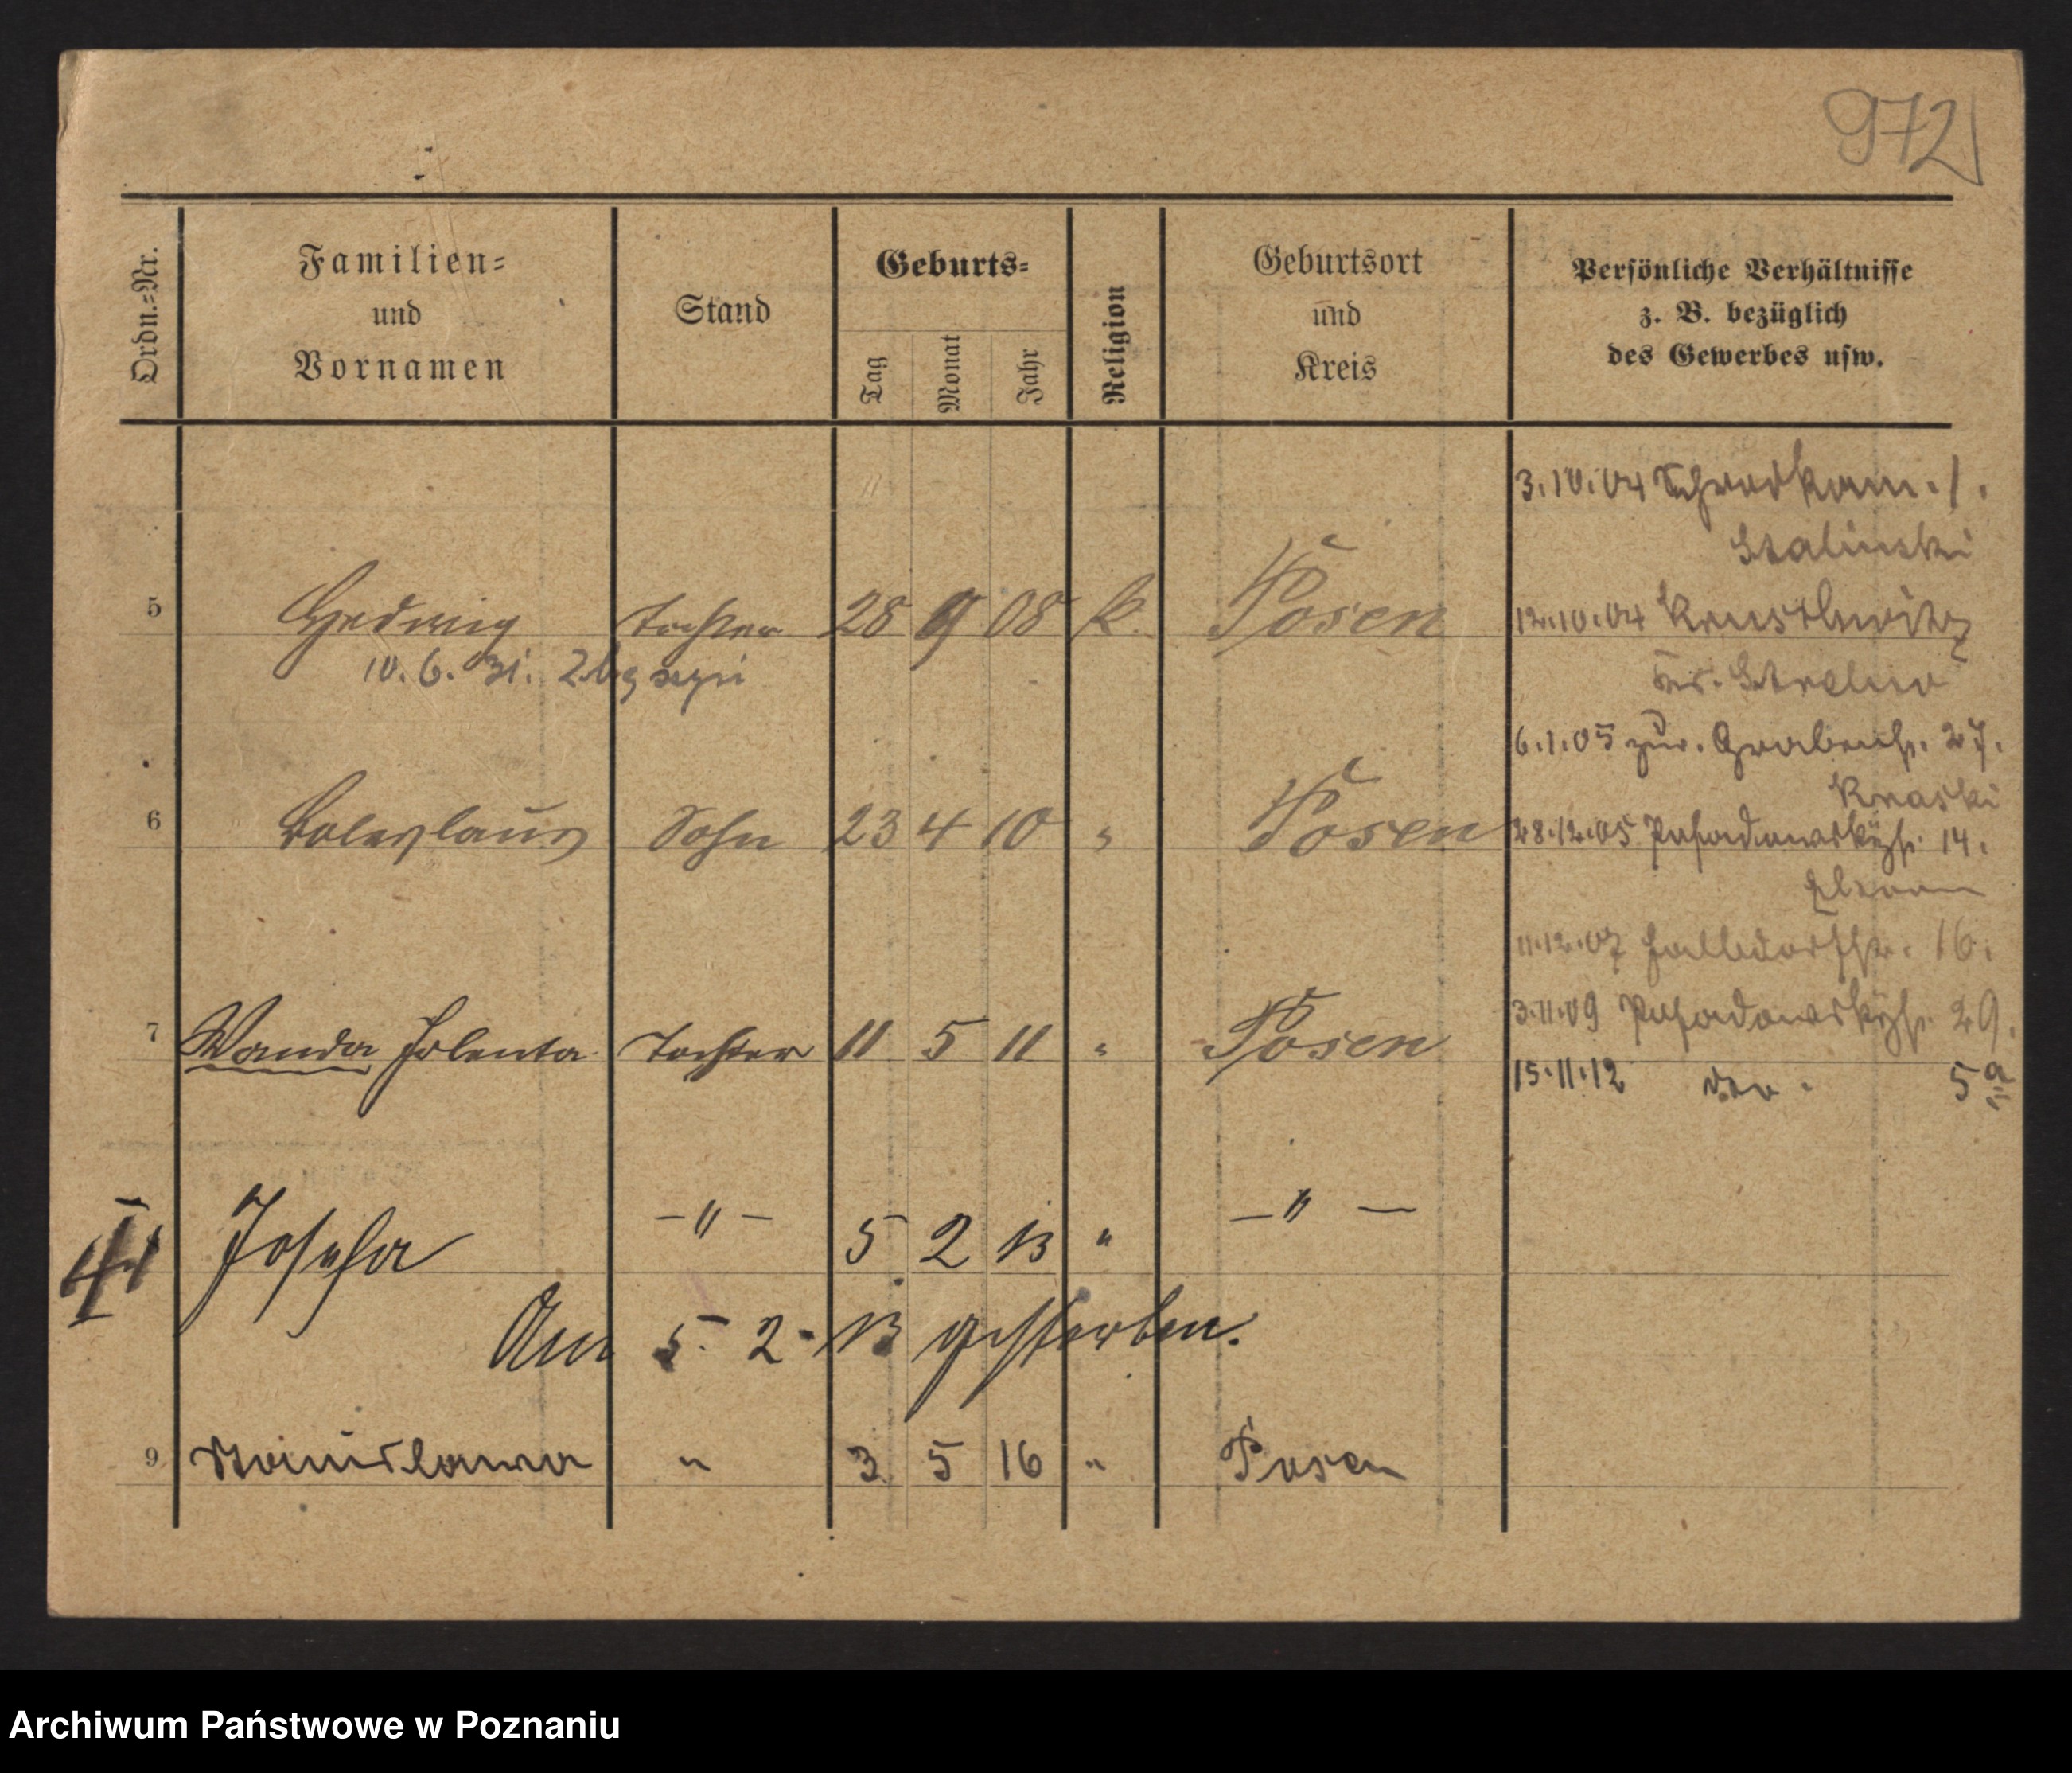 972
Ordn.-Nr.
Familien-
und
Vornamen
Stand
Geburts-
Tag
Monat
Jahr
Religion
Geburtsort
und
Kreis
Persönliche Verhältnisse
z. B. bezüglich
des Gewerbes usw.
3.10.04
Stalinski
5 Hedwig Tochter 28 9 08 k. Posen
12.10.04 Kruschwitz
10.6.31.
Kr. Strelno
6.1.05 zur. Grabenstr. 27.
6 Boleslaus Sohn 23 4 10 " Posen
28.12.05 Posadowskystr. 14.
11.12.07 16.
7 Wanda Jolenta Tochter 11 5 11 " Posen
3.11.09 Posadowskystr. 29.
15.11.12 dto. 5a
Josefa -"- 5 2 13 " -"-
Am 5.2.13 gestorben.
9 Stanislawa " 3 5 16 " Posen
Archiwum Państwowe w Poznaniu